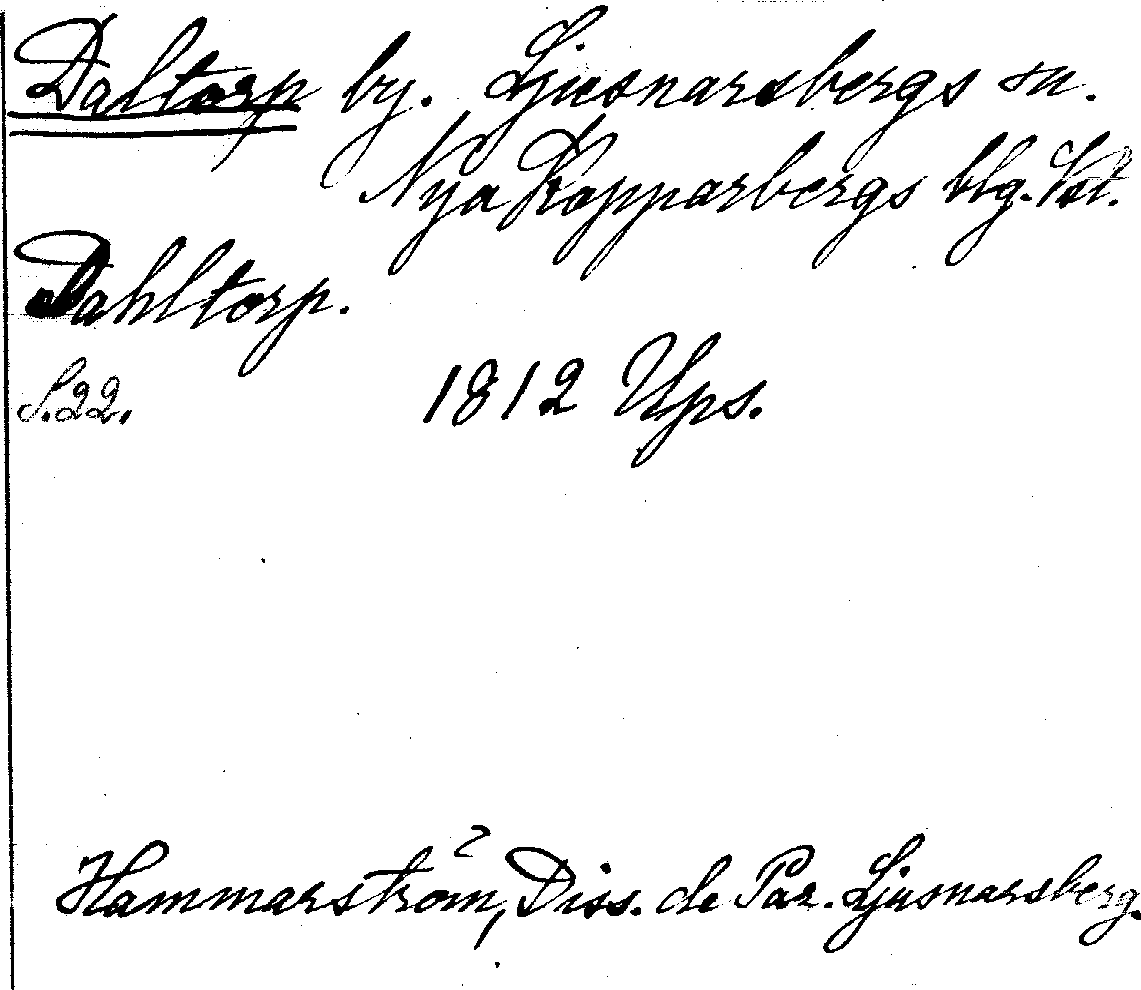 Daltorp by. Ljusnarsbergs sn.
Nya Kopparbergs blg. Vstl.
Dahltorp.
S.22. 1812 Ups.
Hammarström, Diss. de Par. Ljusnarsberg.